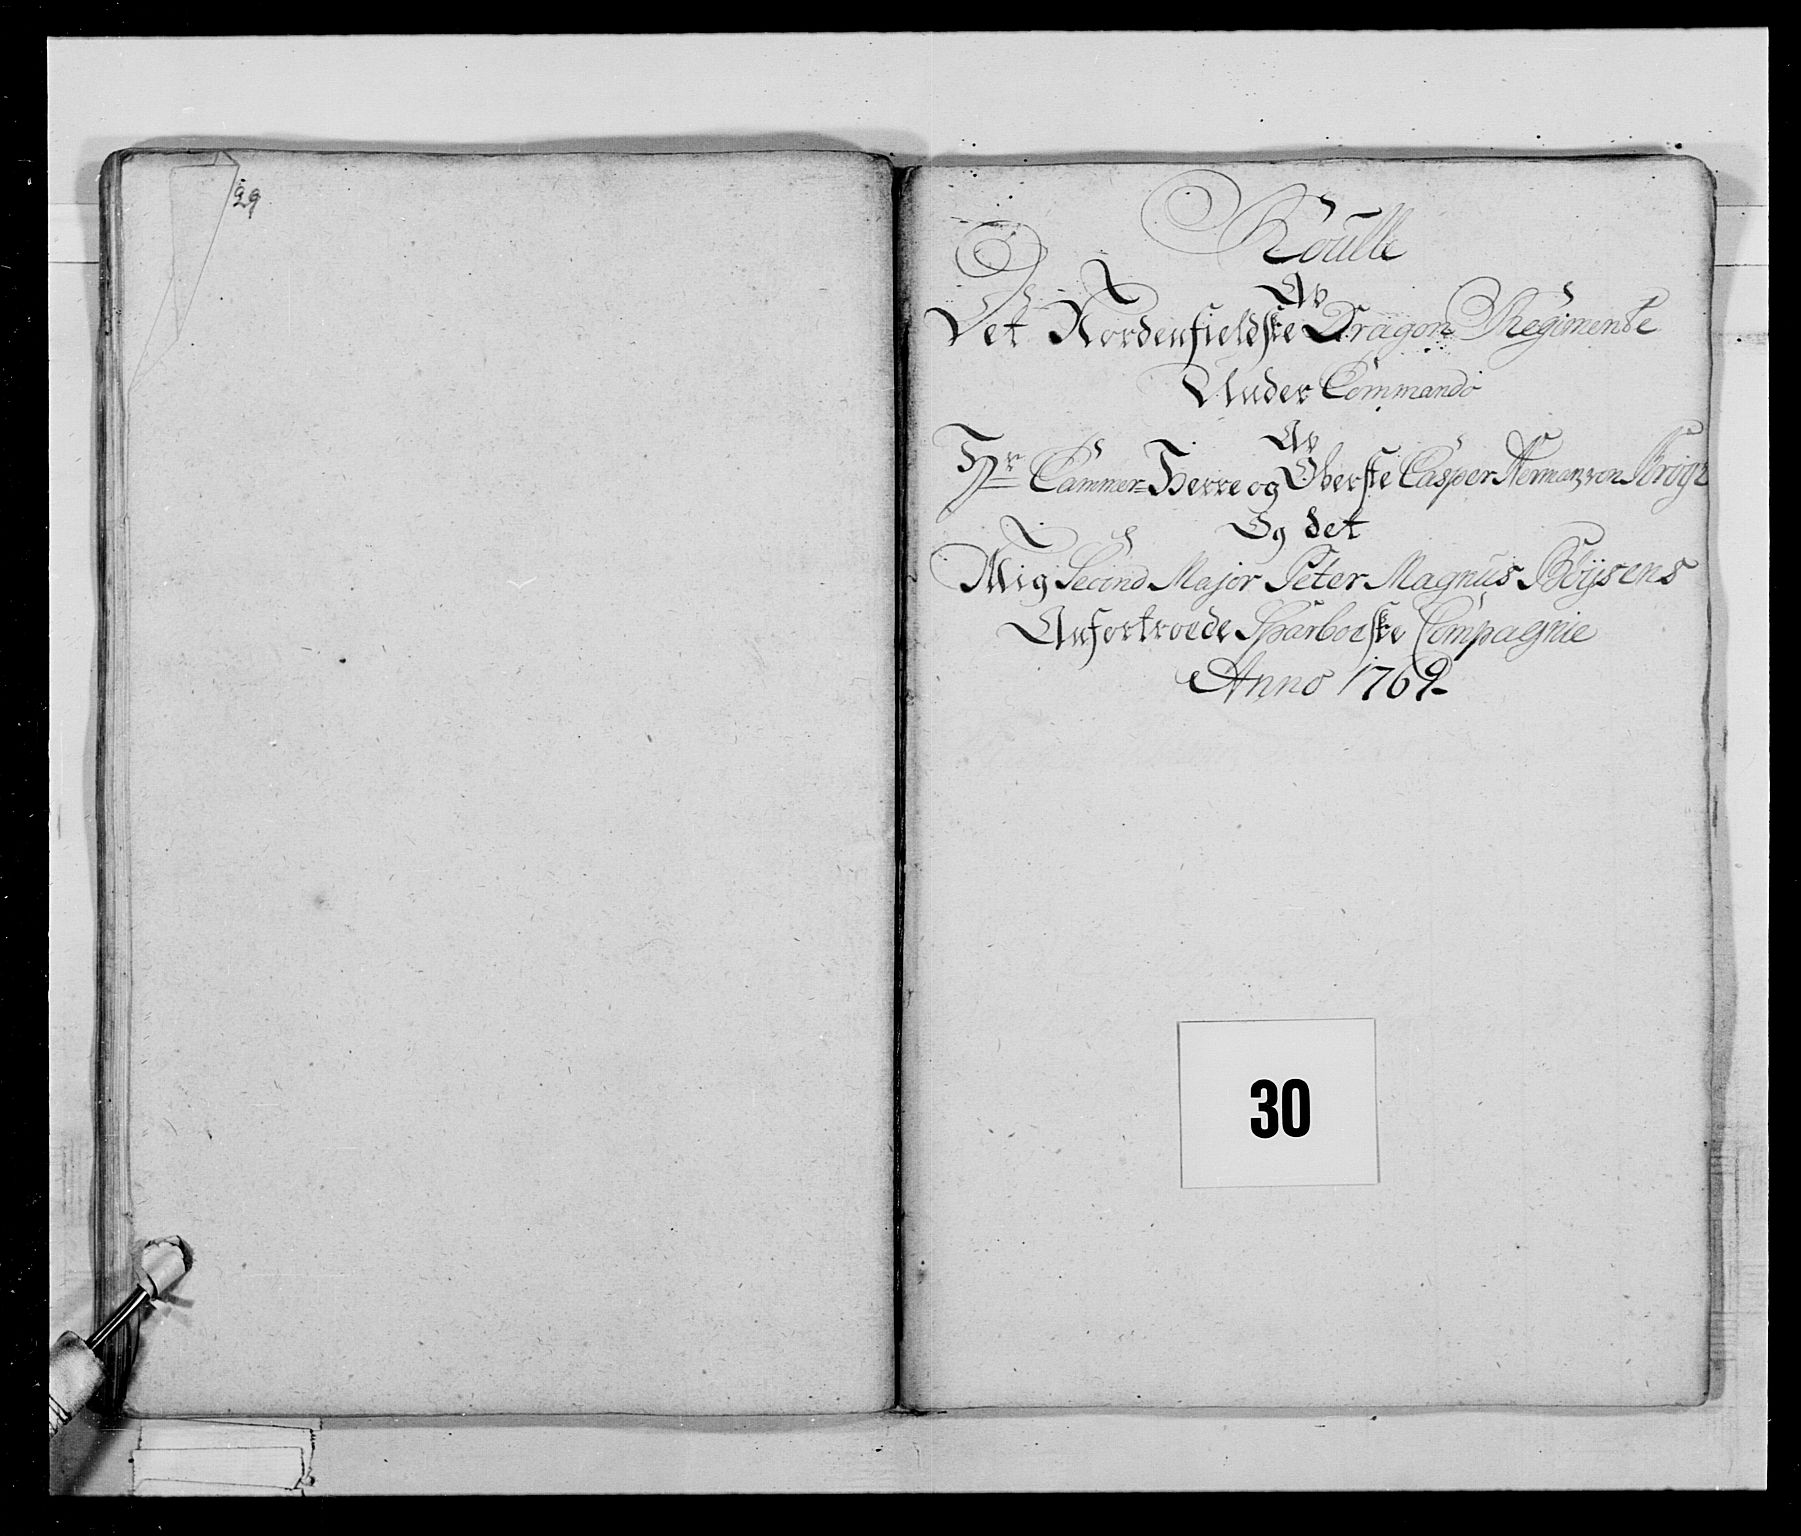 29
Roulle
Av
Det Nordenfieldske Dragon Regimente
Under Commando
Av
Hr Cammer=Herre og Oberste Casper Herman von
Og det
Mig Second Major Peter Magnus Böysens
Anfortroede Sparboeske Compagnie
Anno 1769
30